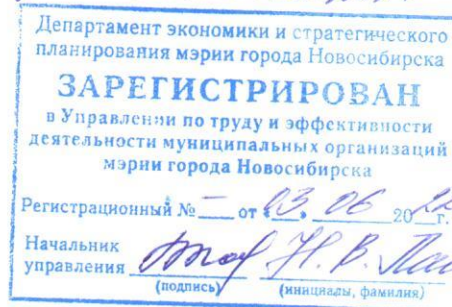 Департамент экономики и стратегического
планирования мэрии города Новосибирска
ЗАРЕГИСТРИРОВАН
в Управлении по труду и эффективности
деятельности муниципальных организаций
мэрии города Новосибирска
Регистрационный № — от « 03 » 06 20 г.
Начальник
управления Н. В.
(подпись) (инициалы, фамилия)